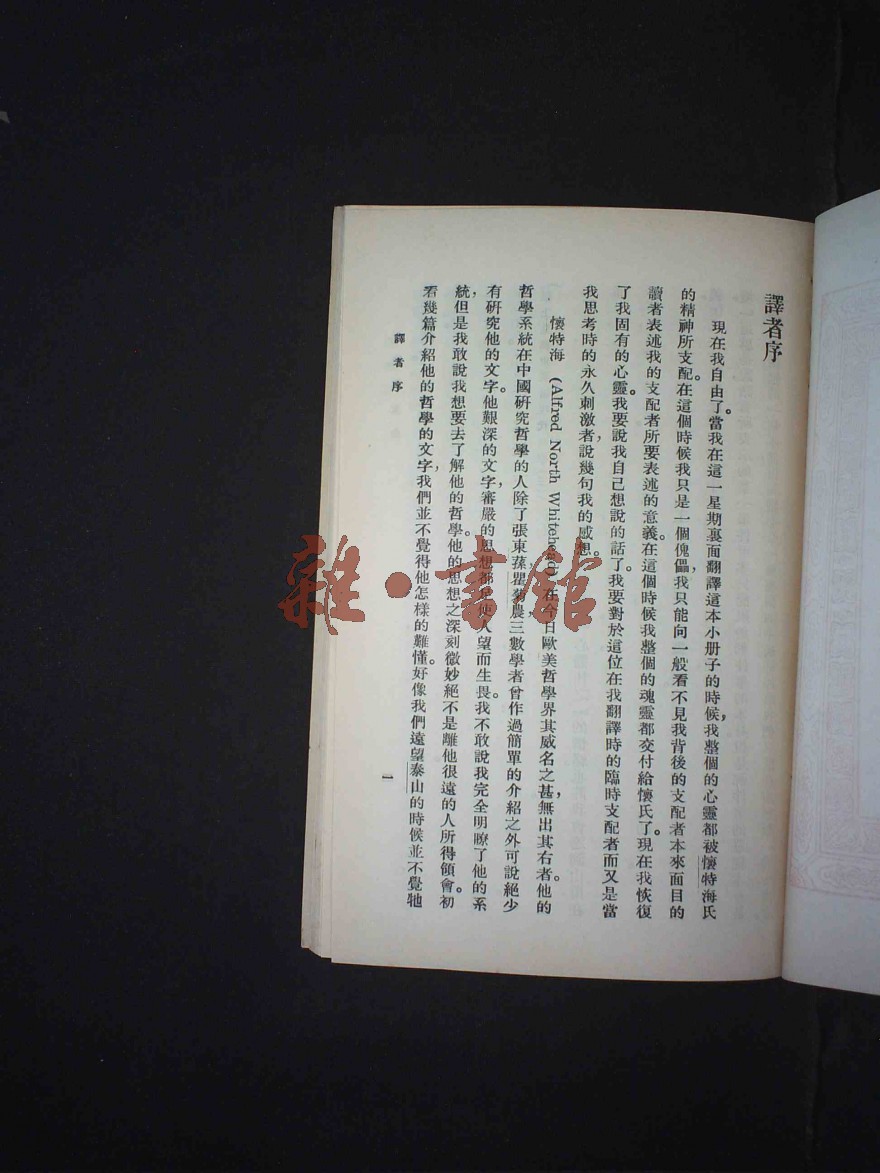 譯者序
現在我自由了。當我在這一星期裏面翻譯這本小册子的時候，我整個的心靈都被懷特海氏
的精神所支配。在這個時候我只是一個傀儡，我只能向一般看不見我背後的支配者本來面目的
讀者表述我的支配者所要表述的意義。在這個時候我整個的魂靈都交付給懷氏了。現在我恢復
了我固有的心靈。我要說我自己想說的話了。我要對於這位在我翻譯時的臨時支配者而又是當
我思考時的永久刺激者，說幾句我的感想。
懷特海 (Alfred North Whitehead) 在今日歐美哲學界其威名之甚，無出其右者。他的
哲學系統在中國研究哲學的人除了張東蓀，瞿菊農三數學者曾作過簡單的介紹之外，可說絕少
有研究他的文字。他艱深的文字，審嚴的思想都足使人望而生畏。我不敢說我完全明瞭了他的系
統，但是我敢說我想要去了解他的哲學。他的思想之深刻微妙絕不是離他很遠的人所得領會。初
看幾篇介紹他的哲學的文字，我們並不覺得他怎樣的難懂。好像我們遠望泰山的時候並不覺牠
譯者序
一
雜·書館